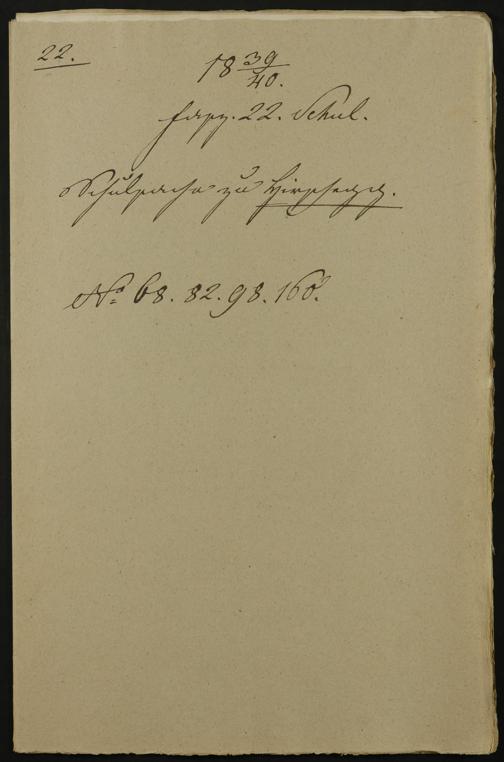 22.
18 39/40.
Fasz. 22. Schul.
Schulsache zu Hirschegg.
No. 68. 82. 98. 160.